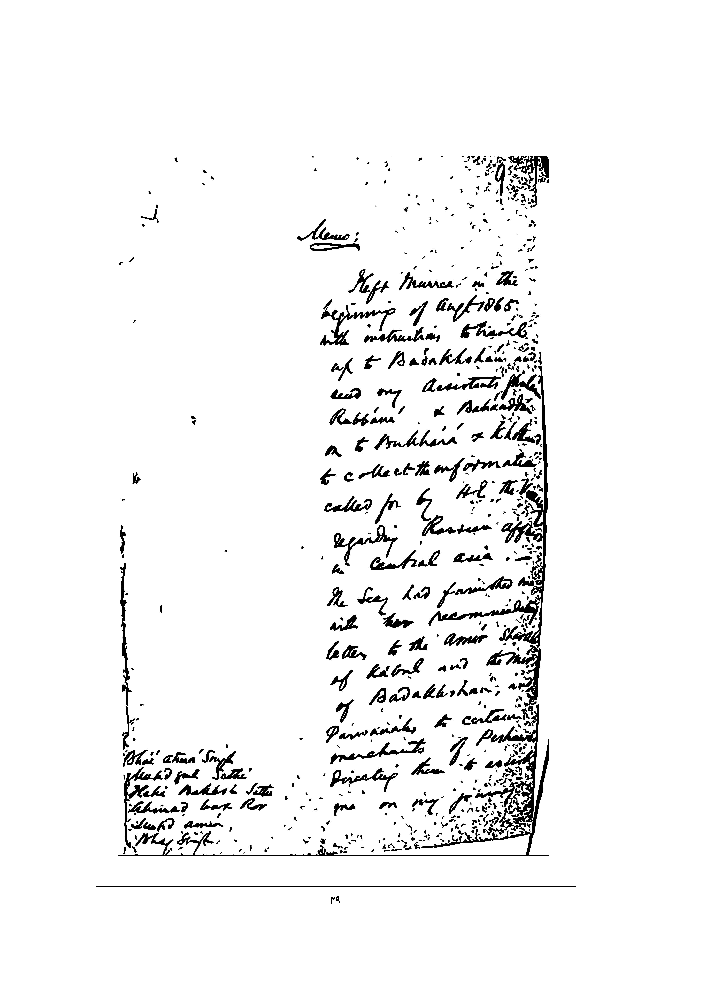 9
Memo:
I left Murree in the
beginning of Augt 1865
with instructions to travel
up to Badakhshan and
send my Assistants
Rabbáni & Baháuddin
on to Bukhárá & Khokand
to collect the information
called for by H.E. the
regarding Russian affairs
in Central asia. —
The Secy had furnished me
with two recommendatory
letters to the Amír
of Kábul and the Mír
of Badakhshan, and
Parwanahs to certain
merchants of Peshawar
directing them to assist
me on my journey
Singh
Sethi
Bakhsh Sethi
Ahmad
amír
Singh
۳۹